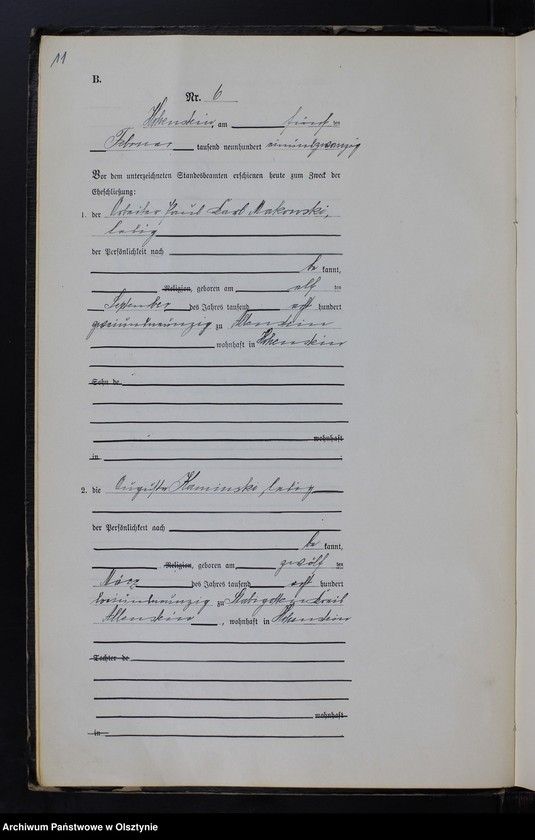 11
B.
Nr. 6
Hohenstein, am fünf ten
Februar tausend neunhundert einundzwanzig
Vor dem unterzeichneten Standesbeamten erschienen heute zum Zweck der
Eheschließung:
1. der Arbeiter Paul Karl Makowski,
ledig
der Persönlichkeit nach
be kannt,
Religion, geboren am elf ten
September des Jahres tausend acht hundert
zu Allenstein
wohnhaft in Hohenstein
Sohn de
wohnhaft
in
2. die Auguste Kaminski, ledig
der Persönlichkeit nach
be kannt,
Religion, geboren am zwölf ten
März des Jahres tausend acht hundert
dreiundneunzig zu Kreis
Allenstein, wohnhaft in Hohenstein
Tochter de
wohnhaft
in
Archiwum Państwowe w Olsztynie